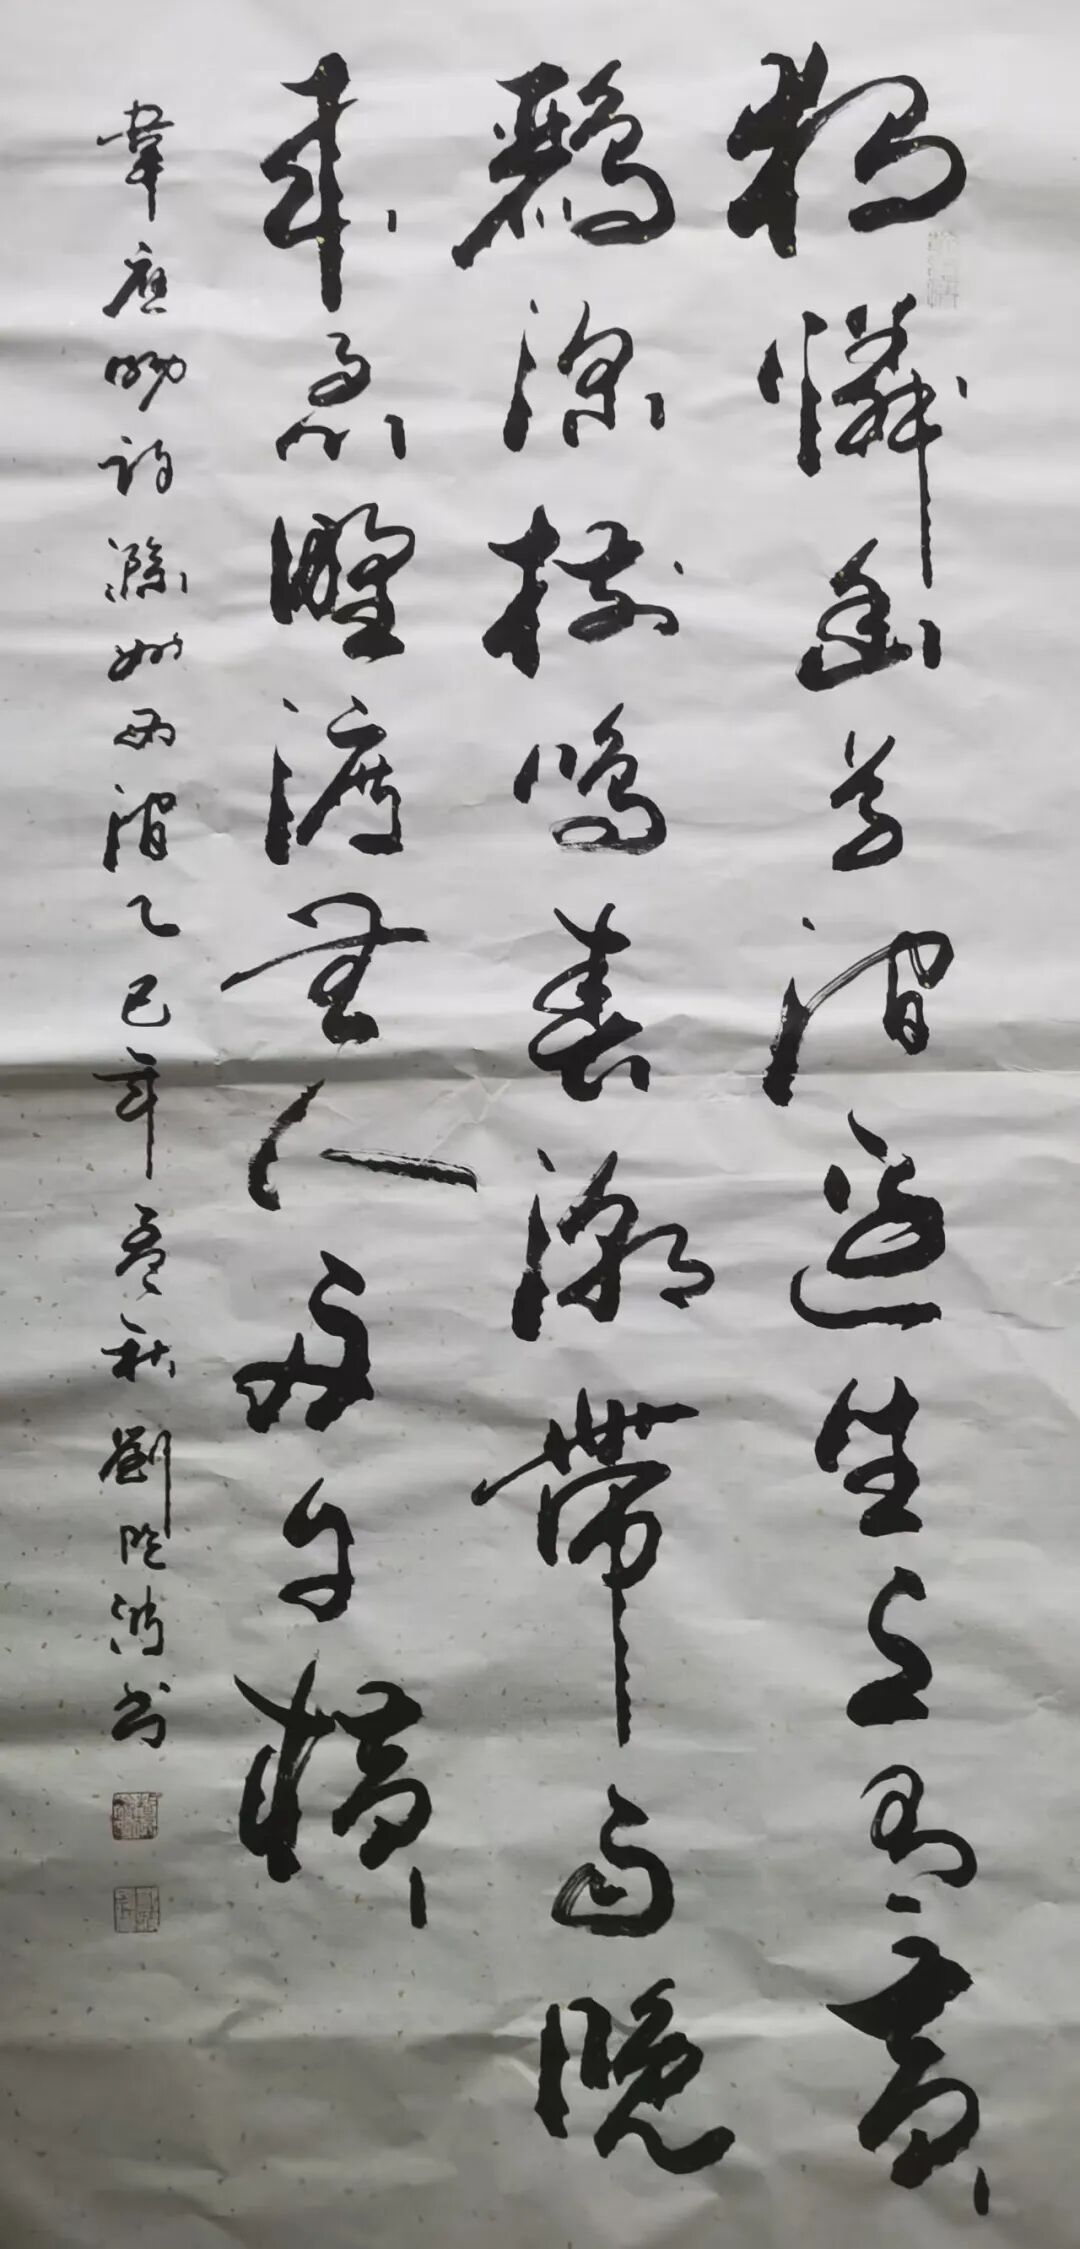 獨憐幽草澗邊生上有黃
鸝深樹鳴春潮帶雨晚
來急野渡無人舟自橫
韋應物詩滁州西澗乙巳年孟秋劉波書